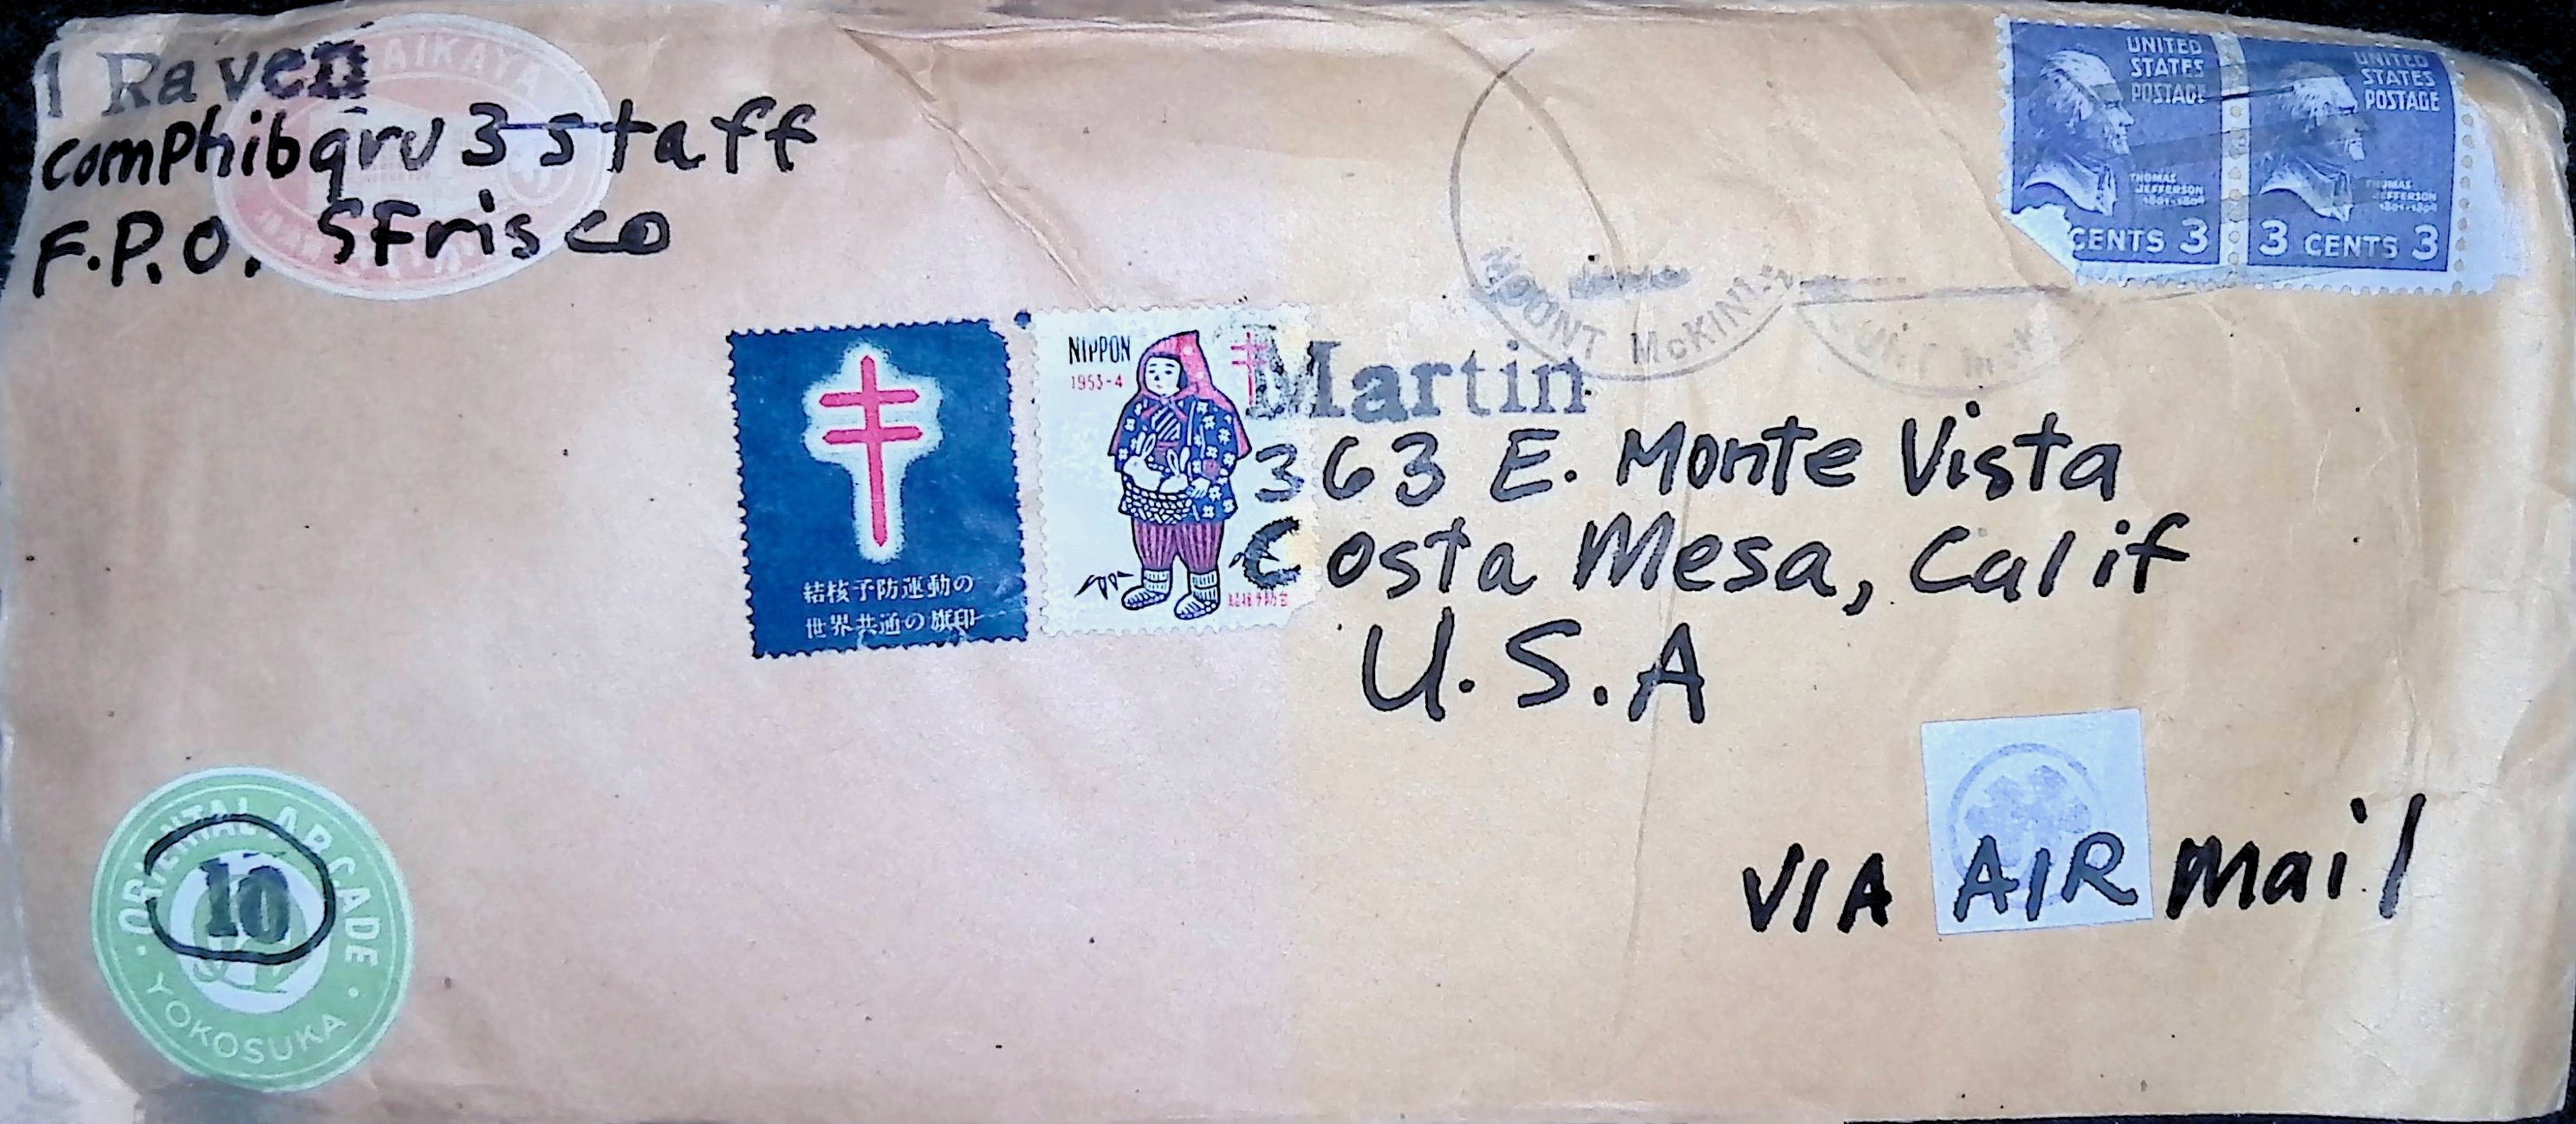 1 Raven
comPhibgru 3 staff
F.P.O. SFrisco
UNITED
STATES
POSTAGE
THOMAS
JEFFERSON
1801-1809
CENTS 3
UNITED
STATES
POSTAGE
THOMAS
JEFFERSON
1801-1809
3 CENTS 3
MOUNT McKINL
NIPPON
1953-4
結核予防会
結核予防運動の
世界共通の旗印
Martin
363 E. Monte Vista
Costa Mesa, Calif
U.S.A
VIA AIR Mail
ORIENTAL ARCADE
10
YOKOSUKA